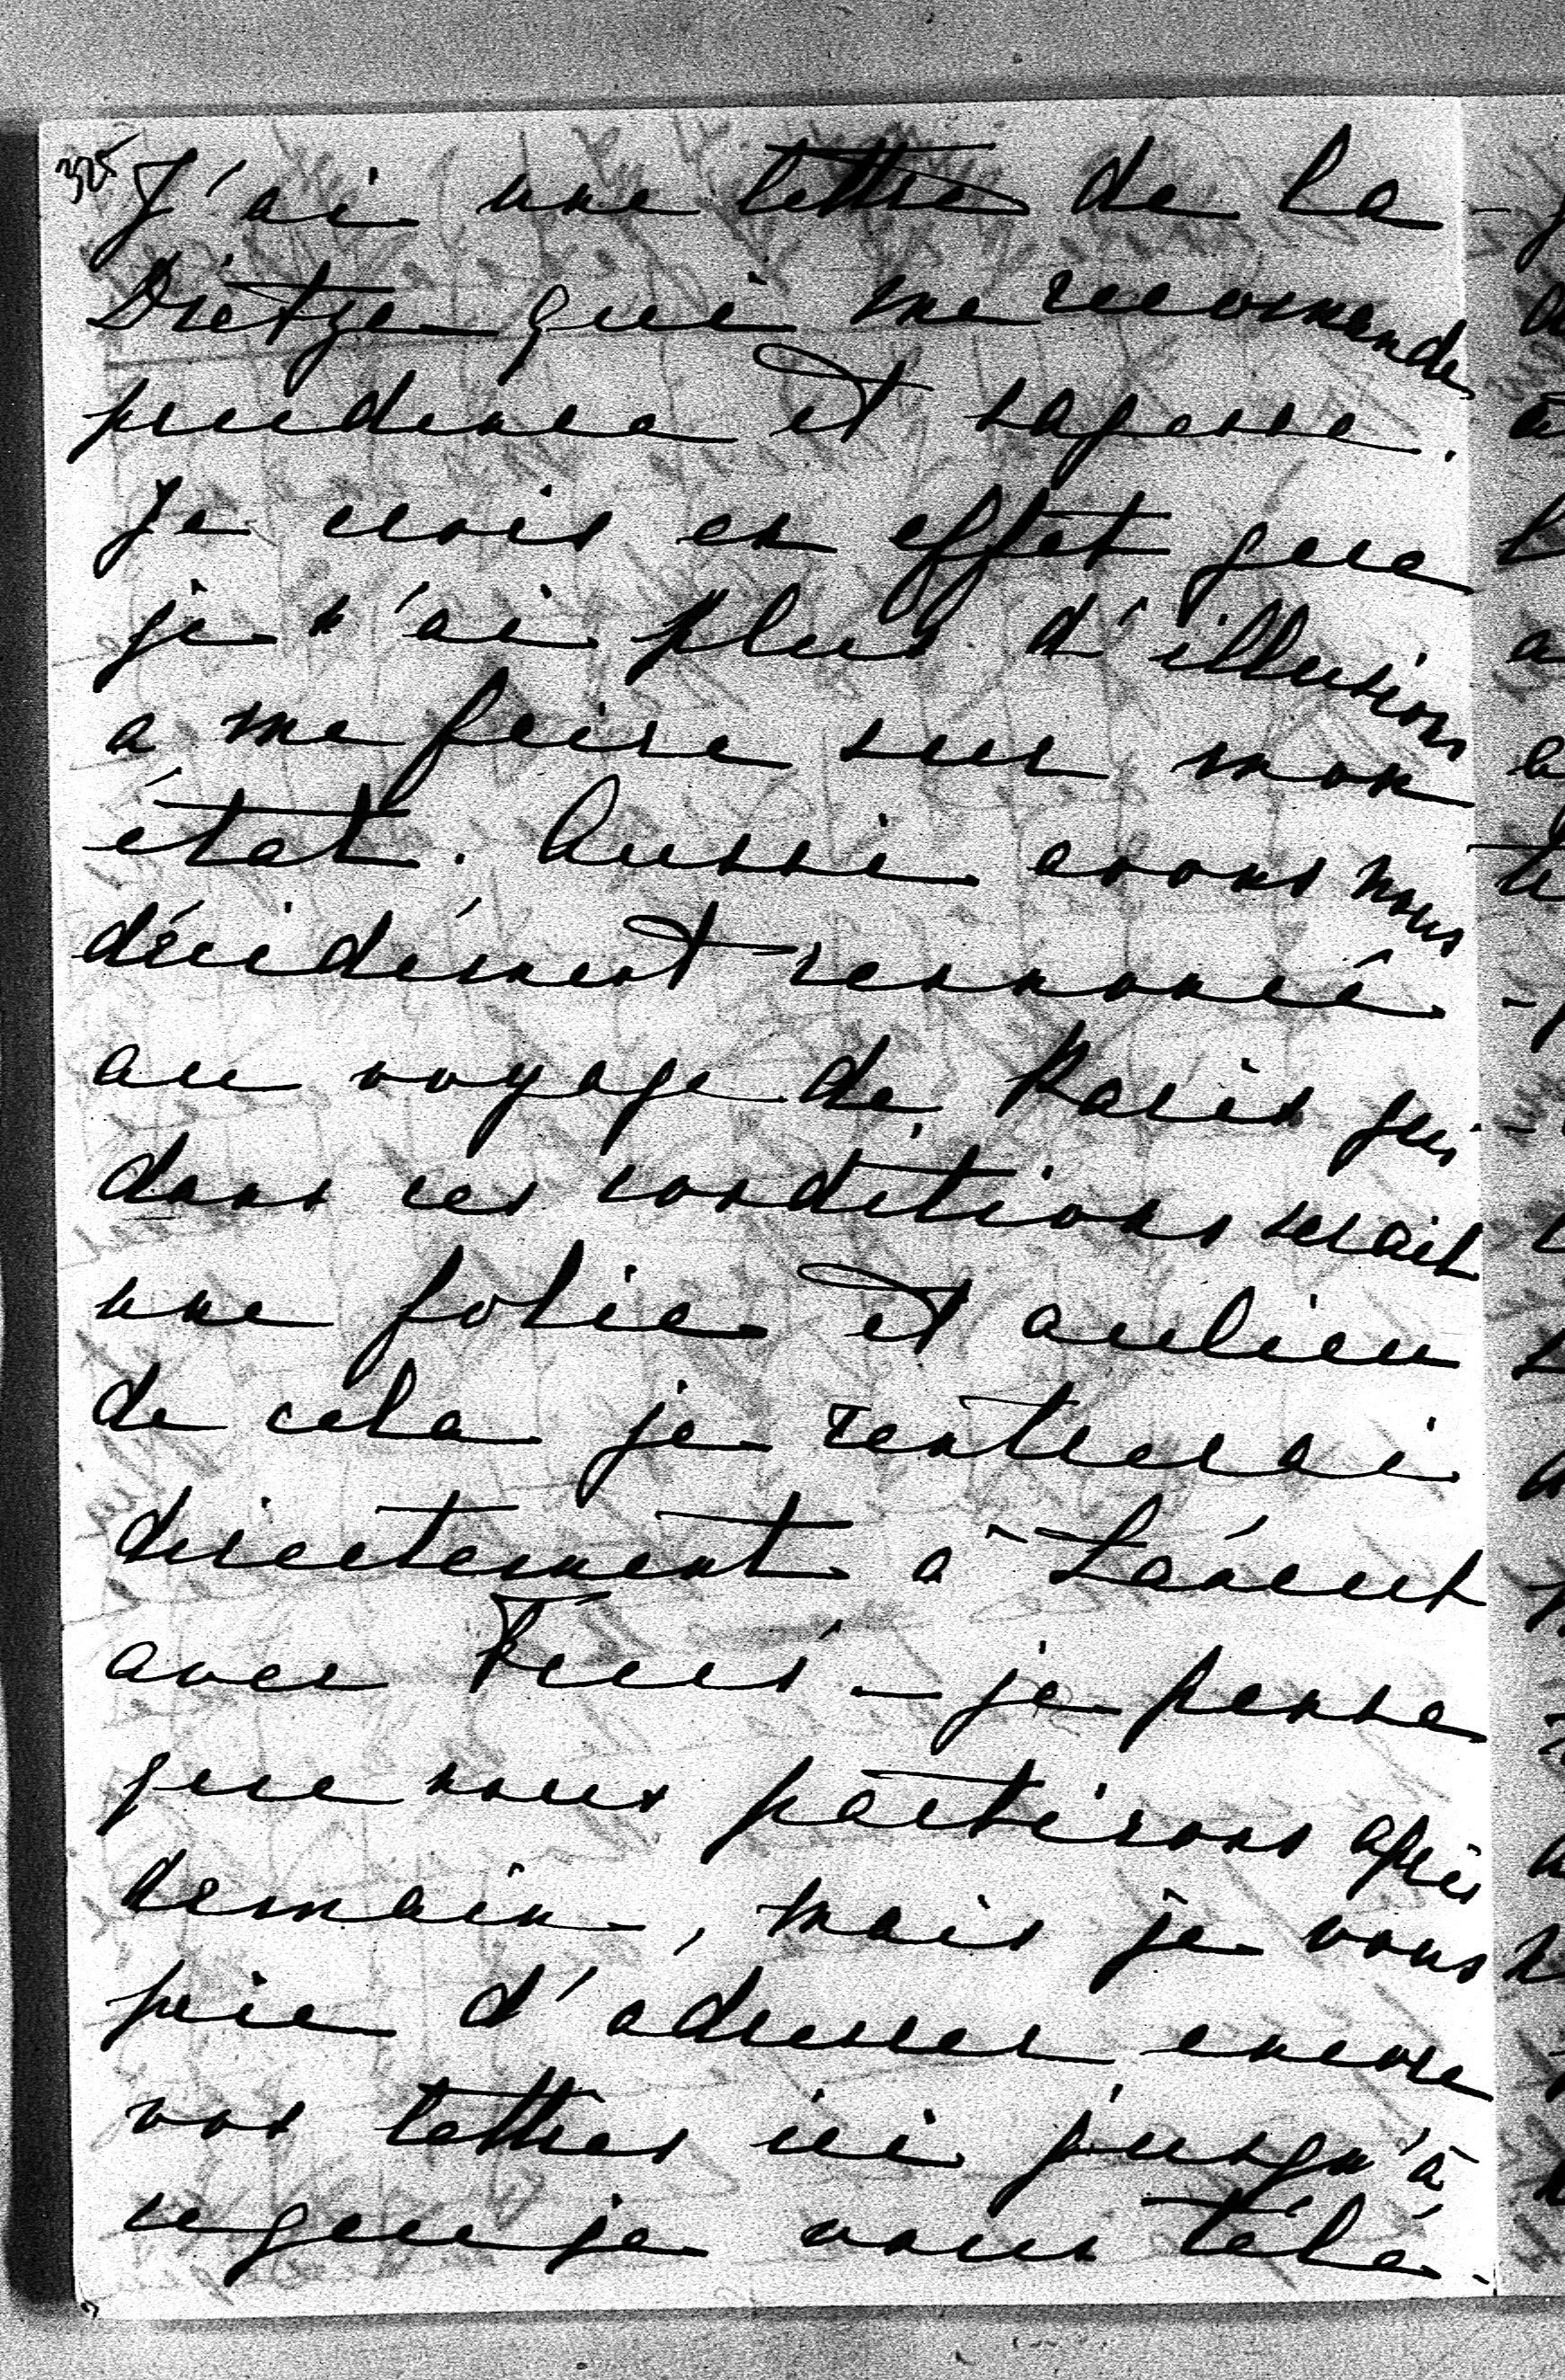 325
J'ai une lettre de la
Dietze qui me recommande
prudence et sagesse.
Je crois en effet que
je n'ai plus d'illusions
a me faire sur mon
état. Aussi avons nous
décidément renoncé
au voyage de Paris qui
dans ces conditions serait
une folie et aulieu
de cela je rentrerai
directement à Láncut
avec – je pense
que nous partirons après
demain, mais je vous
prie d'adresser encore
vos lettres ici jusqu'à
ce que je vous télé-